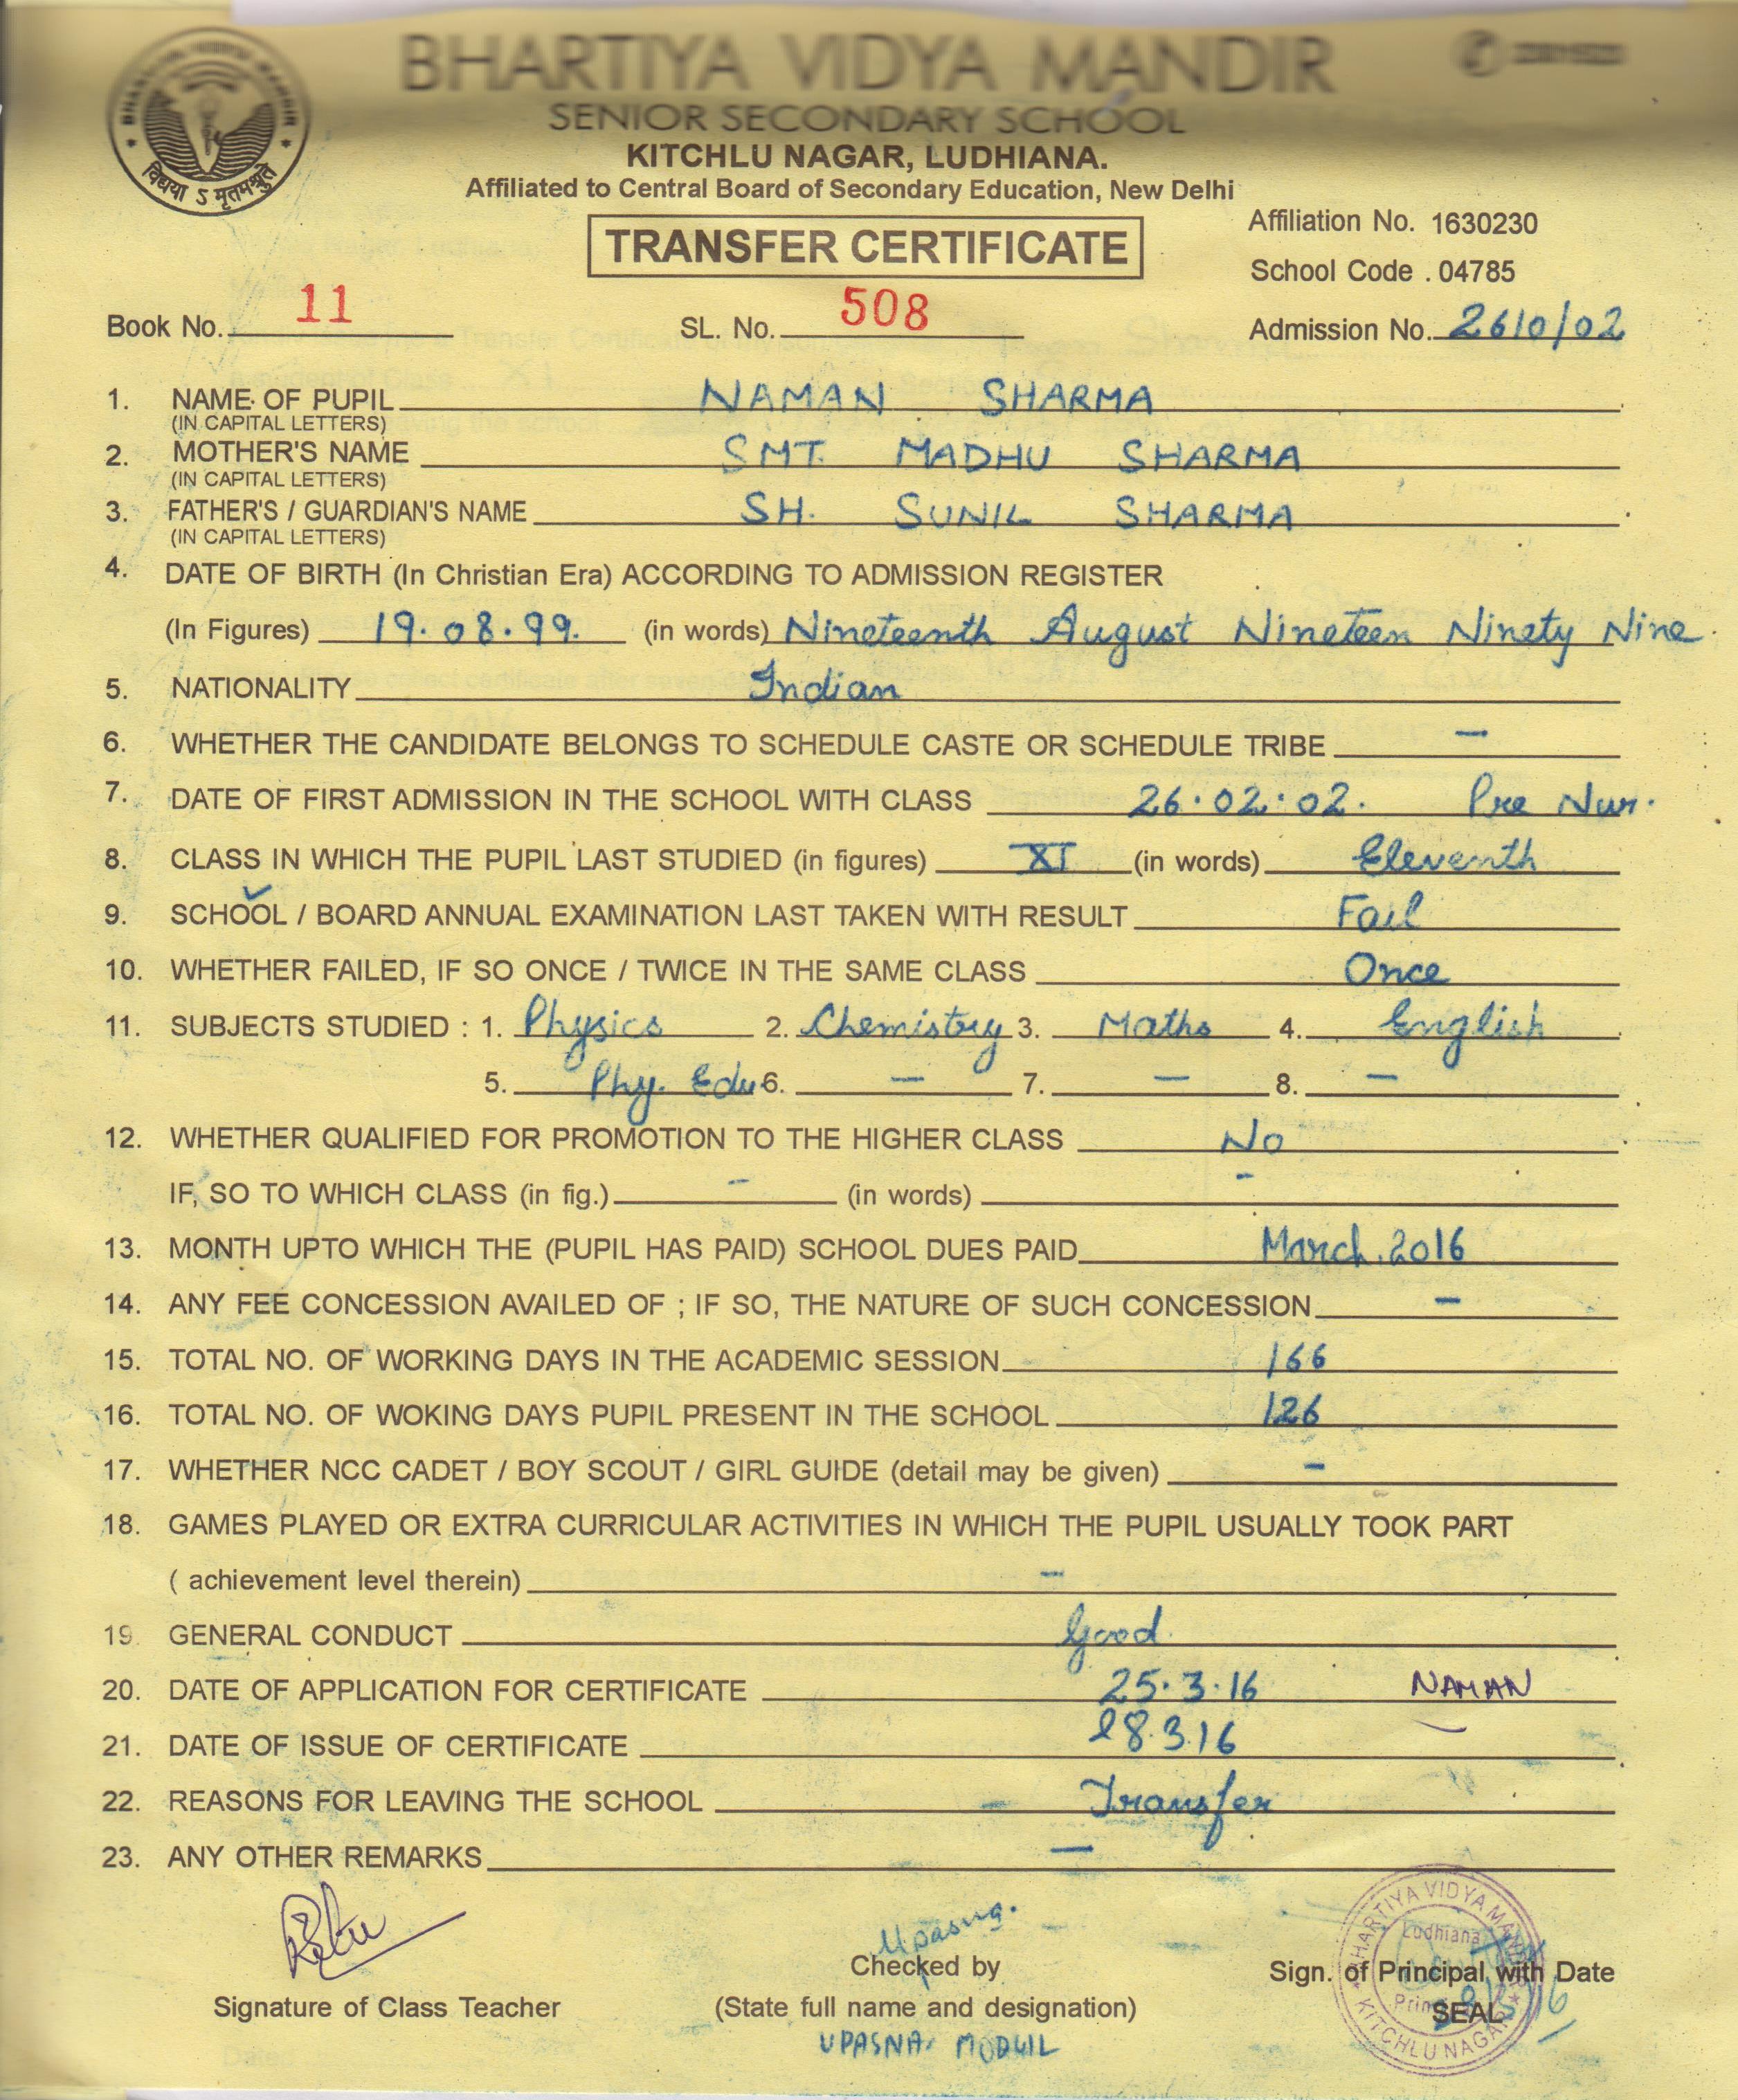 BHARTIYA VIDYA MANDIR
SENIOR SECONDARY SCHOOL
KITCHLU NAGAR, LUDHIANA.
Affiliated to Central Board of Secondary Education, New Delhi
विद्यया ऽ मृतमश्नुते
TRANSFER CERTIFICATE
Affiliation No. 1630230
School Code . 04785
Book No. 11 SL. No. 508 Admission No. 2610/02
1. NAME OF PUPIL NAMAN SHARMA
(IN CAPITAL LETTERS)
2. MOTHER'S NAME SMT. MADHU SHARMA
(IN CAPITAL LETTERS)
3. FATHER'S / GUARDIAN'S NAME SH. SUNIL SHARMA
(IN CAPITAL LETTERS)
4. DATE OF BIRTH (In Christian Era) ACCORDING TO ADMISSION REGISTER
(In Figures) 19.08.99. (in words) Nineteenth August Nineteen Ninety Nine
5. NATIONALITY Indian
6. WHETHER THE CANDIDATE BELONGS TO SCHEDULE CASTE OR SCHEDULE TRIBE –
7. DATE OF FIRST ADMISSION IN THE SCHOOL WITH CLASS 26.02.02. Pre Nur.
8. CLASS IN WHICH THE PUPIL LAST STUDIED (in figures) XI (in words) Eleventh
9. SCHOOL / BOARD ANNUAL EXAMINATION LAST TAKEN WITH RESULT Fail
10. WHETHER FAILED, IF SO ONCE / TWICE IN THE SAME CLASS Once
11. SUBJECTS STUDIED : 1. Physics 2. Chemistry 3. Maths 4. English
5. Phy. Edu 6. – 7. – 8. –
12. WHETHER QUALIFIED FOR PROMOTION TO THE HIGHER CLASS No
IF, SO TO WHICH CLASS (in fig.) – (in words) –
13. MONTH UPTO WHICH THE (PUPIL HAS PAID) SCHOOL DUES PAID March.2016
14. ANY FEE CONCESSION AVAILED OF ; IF SO, THE NATURE OF SUCH CONCESSION –
15. TOTAL NO. OF WORKING DAYS IN THE ACADEMIC SESSION 166
16. TOTAL NO. OF WOKING DAYS PUPIL PRESENT IN THE SCHOOL 126
17. WHETHER NCC CADET / BOY SCOUT / GIRL GUIDE (detail may be given) –
18. GAMES PLAYED OR EXTRA CURRICULAR ACTIVITIES IN WHICH THE PUPIL USUALLY TOOK PART
( achievement level therein) –
19. GENERAL CONDUCT Good.
20. DATE OF APPLICATION FOR CERTIFICATE 25.3.16 NAMAN
21. DATE OF ISSUE OF CERTIFICATE 28.3.16
22. REASONS FOR LEAVING THE SCHOOL – Transfer
23. ANY OTHER REMARKS –
Upasna.
Signature of Class Teacher
Checked by
(State full name and designation)
UPASNA MODGIL
Sign. of Principal with Date
SEAL
BHARTIYA VIDYA MANDIR
Ludhiana
KITCHLU NAGAR